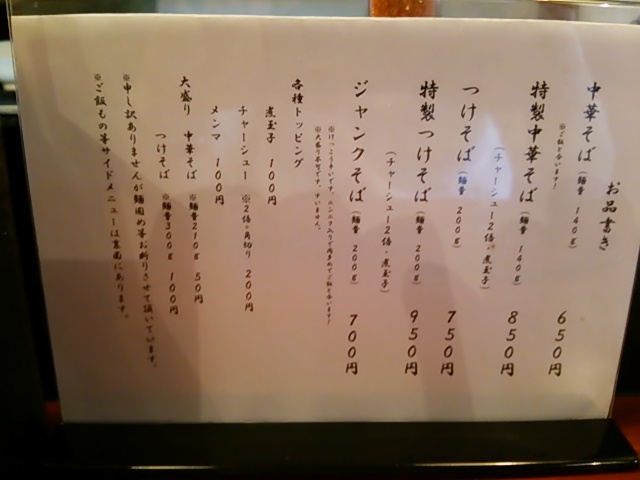 お品書き
中華そば（麺量 140g） 650円
※ご飯と合います！
特製中華そば（麺量 140g） 850円
（チャーシュー2倍・煮玉子）
つけそば（麺量 200g） 750円
特製つけそば（麺量 200g） 950円
（チャーシュー2倍・煮玉子）
ジャンクそば（麺量 200g） 700円
※けっこう辛いです。ニンニク入りで肉多めでご飯と合います！
※大盛り不可です。すいません。
各種トッピング
煮玉子 100円
チャーシュー ※2倍・角切り 200円
メンマ 100円
大盛り 中華そば ※麺量210g 50円
つけそば ※麺量300g 100円
※申し訳ありませんが麺固め等お断りさせて頂いています。
※ご飯もの等サイドメニューは裏面にあります。